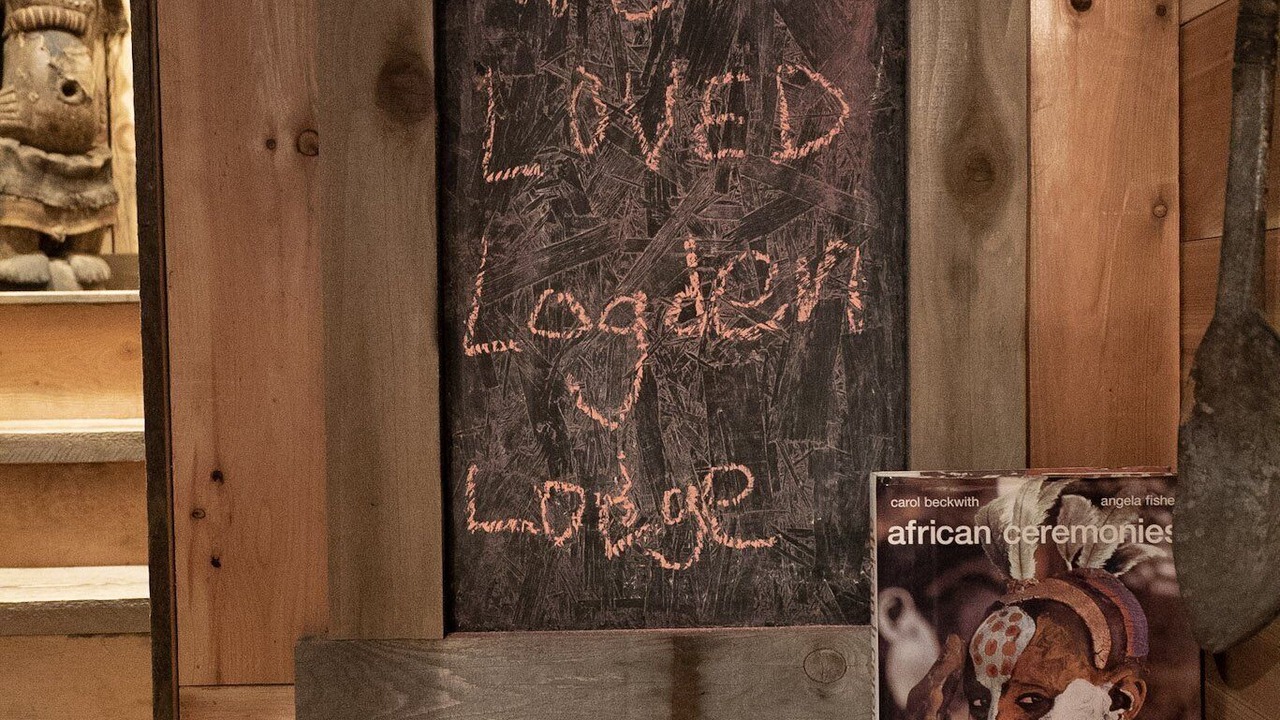 LOVED
Logden
Lodge
carol beckwith
angela fishe
african ceremonies